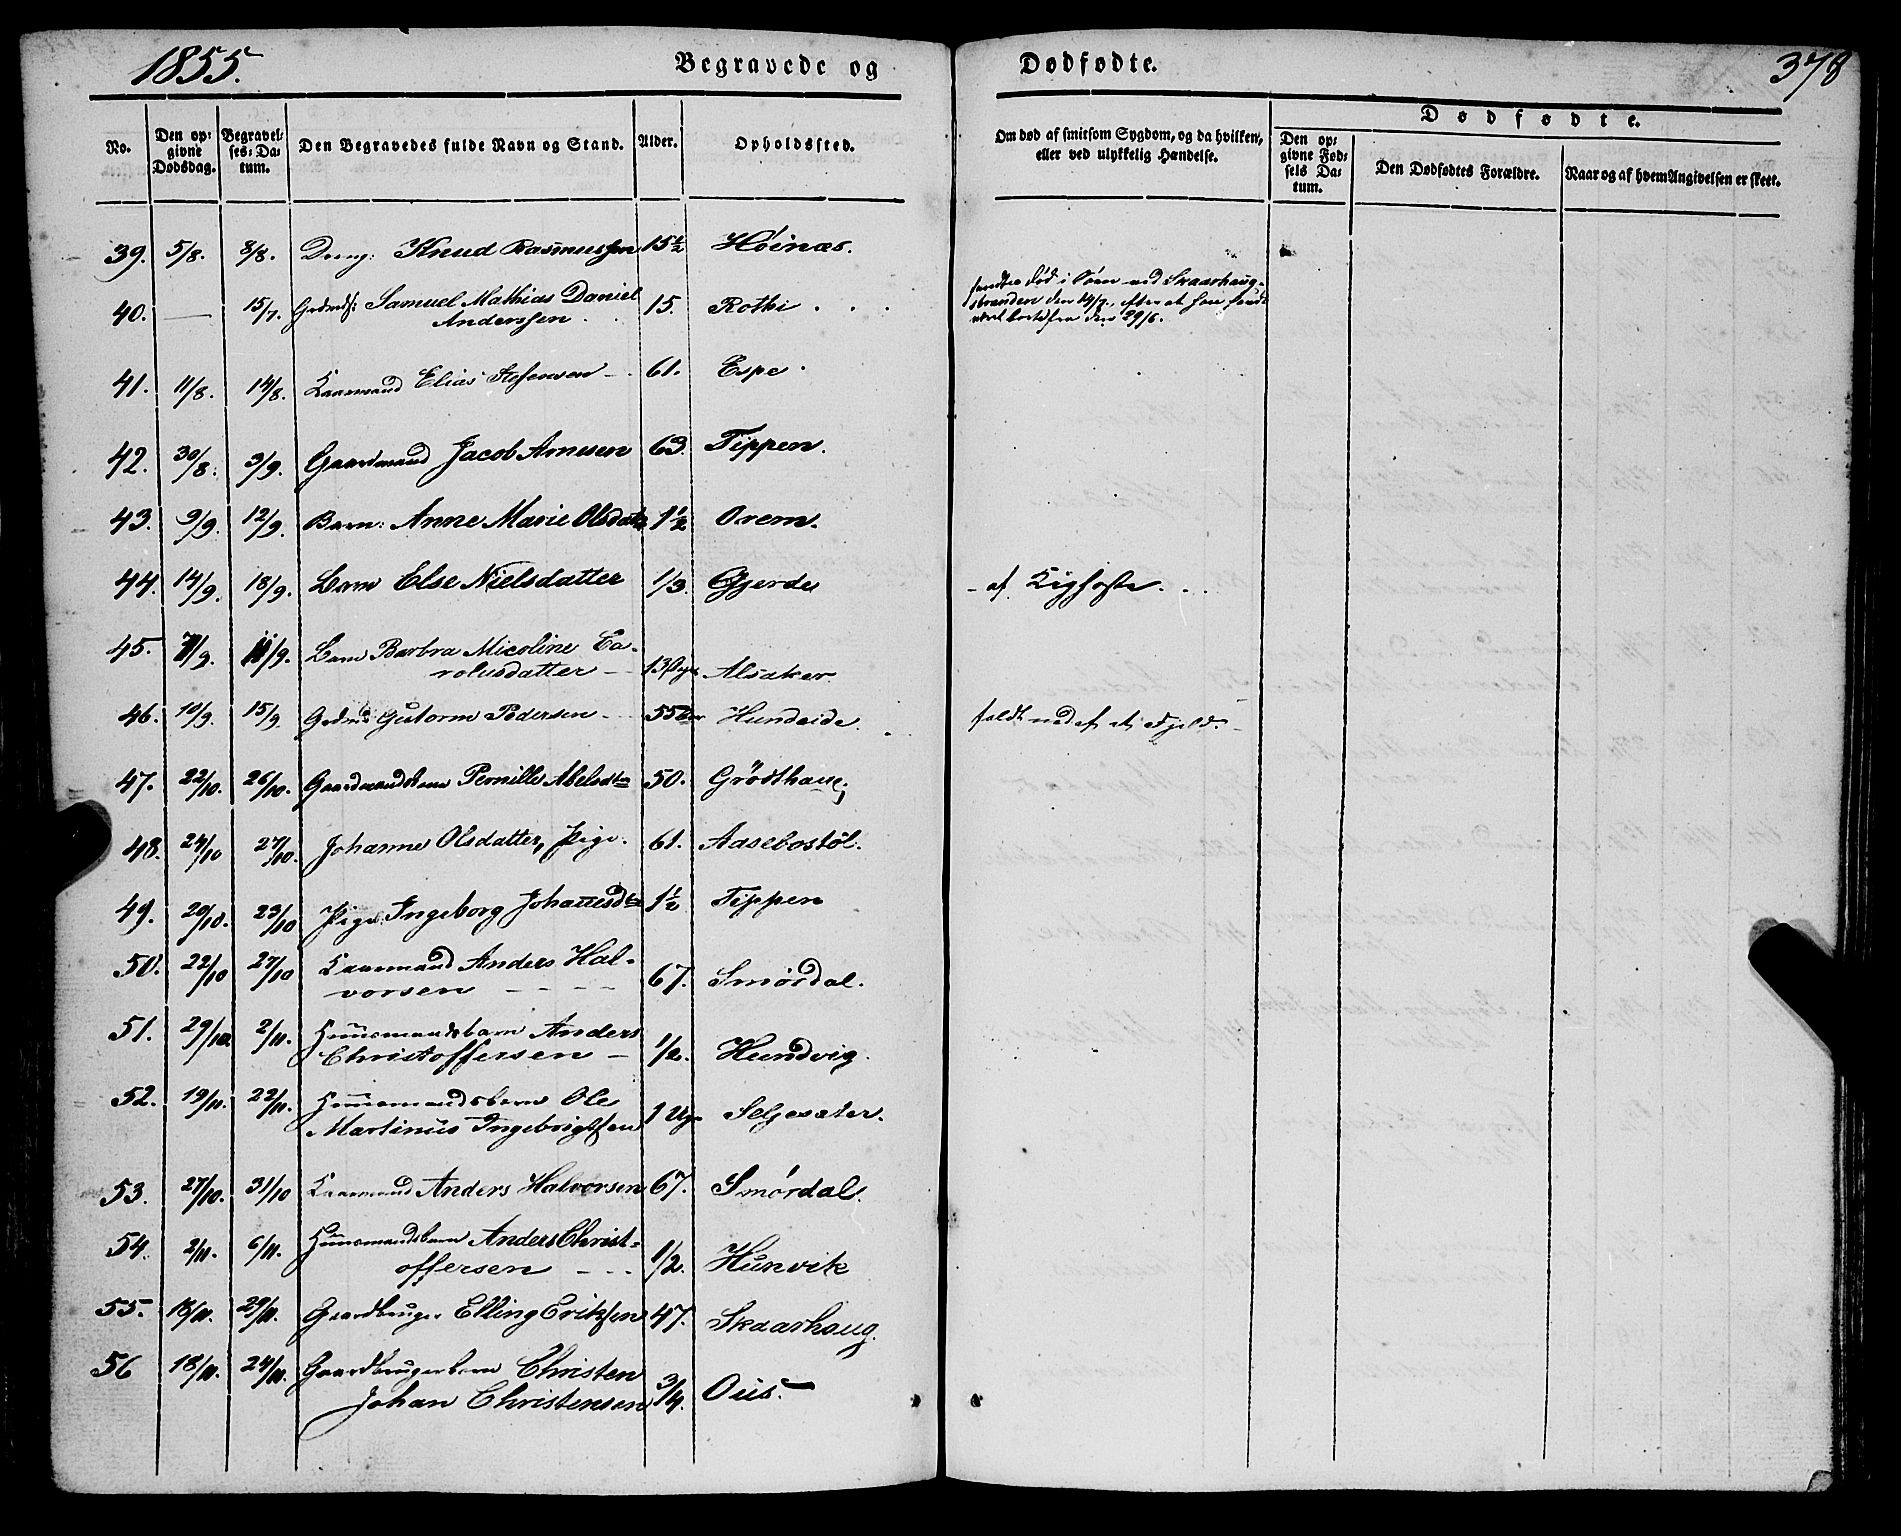 1855.
Begravede og
Dødfødte.
378
No.
Den op-
givne
Dødsdag.
Begravel-
ses-Da-
tum.
Den Begravedes fulde Navn og Stand.
Alder.
Opholdssted.
Om død af smitsom Sygdom, og da hvilken,
eller ved ulykkelig Hændelse.
Dødfødte.
Den op-
givne Fød-
sels Da-
tum.
Den Dødfødtes Forældre.
Naar og af hvem Angivelsen er skeet.
39. 5/8. 8/8. Dreng: Knud Rasmussen 15½ Höinæs.
40. — 15/7. Samuel Mathias Daniel
Anderssen. 15. Rotki
død i Søen ved Skaarhaug-
stranden den 14/7., efter at have
den 29/6.
41. 11/8. 14/8. Kaarmand Elias Stefensen — 61. Espe.
42. 30/8. 3/9. Gaardmand Jacob Arnesen 63. Tippen.
43. 9/9. 12/9. Barn: Anne Marie Olsdatr 1½ Orem.
44. 14/9. 18/9. Barn Else Nielsdatter 1/3. Gjerde - af Kighoste.
45. 7/9. 11/9. Barn Barbra Micoline Ca-
rolusdatter — 13 Dage Alsaker.
46. 10/9. 15/9. Gutorm Pedersen 55 Aar Hundeide. faldt ned af et Fjeld.
47. 22/10. 26/10. Gaardmandskone Pernille Abelsdtr 50. Grösthaug
48. 24/10 27/10. Johanne Olsdatter, Pige. 61. Aasebostöl.
49. 20/10. 23/10 Pige Ingeborg Johannesdtr 1½ Tippen
50. 22/10 27/10 Kaarmand Anders Hal-
vorsen — 67. Smørdal.
51. 29/10. 2/11. Huusmandsbarn Anders
Christoffersen — 1/2. Hundvig.
52. 19/11. 22/11. Huusmandsbarn Ole
Martinus Ingebrigtsen 1 Uge Seljesæter.
53. 27/10. 31/10 Kaarmand Anders Halvorsen 67. Smördal.
54. 2/11. 6/11. Huusmandsbarn Anders Christ-
offersen — 1/2. Hunvik
55. 18/11. 29/11. Gaardbruger Elling Eriksen 47. Skaarhaug.
56 18/11. 24/11. Gaardbrugerbarn Christen
Johan Christensen 3/4. Ous.